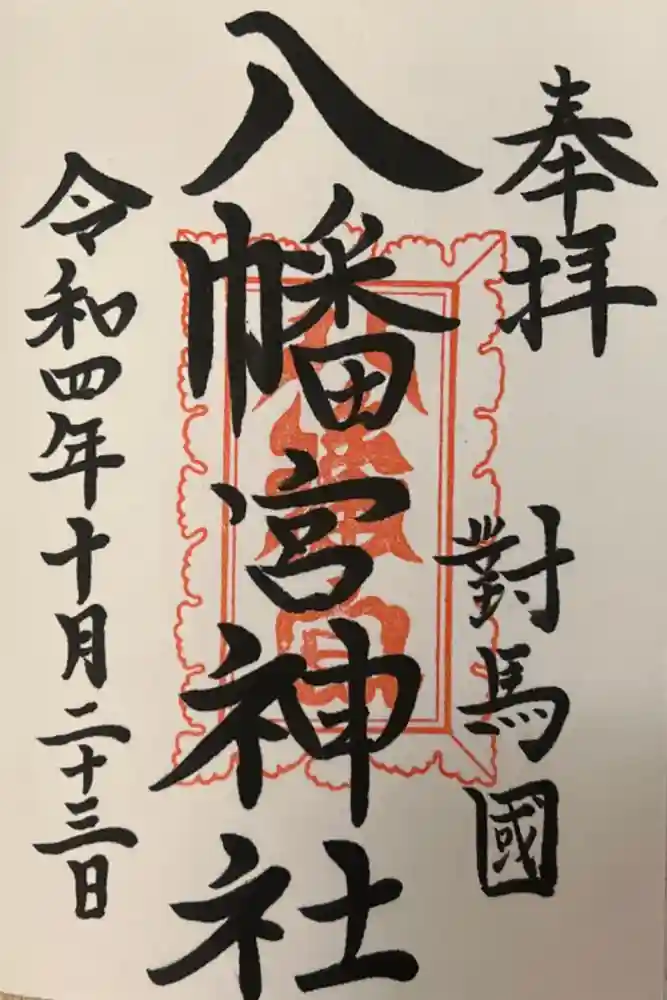 奉拝
對馬國
八幡宮神社
八幡宮
令和四年十月二十三日